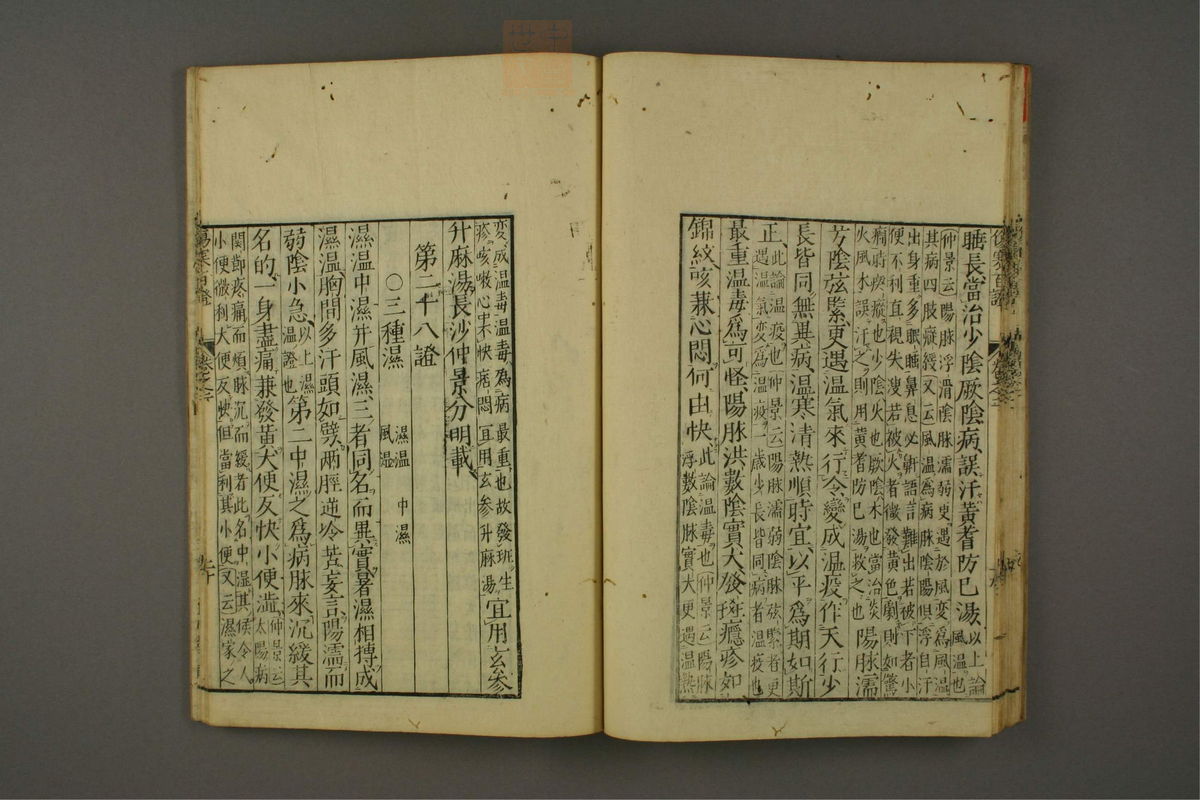 聴長當治少陰厥陰病誤汗黃耆防已湯以上論風溫也
仲景云陽脉浮滑陰脉濡弱更遇於風變爲風溫
其病四肢緩又云風溫爲病脉陰陽俱浮自汗
出身重多眠睡鼻息必鼾語言難出若被下者小
便不利直視失溲若被火者微發黃色劇則如驚
癇時瘈瘲也少陰火也厥陰木也當治
火風木誤汗之則用黃耆防已湯救之也
陽脉濡
芳陰弦緊更遇溫氣來行令變成溫疫作天行少
長皆同無異病溫寒清熱順時宜以平爲期如斯
正此論溫疫也仲景云陽脉濡弱陰脉弦緊者更
遇溫氣變爲溫疫一歲少長皆同病者溫疫也
最重溫毒爲可怪陽脉洪數陰實大發斑癮疹如
錦紋咳兼心悶何由快此論溫毒也仲景云陽脉
浮數陰脉實大更遇溫熱
變成溫毒溫毒爲病最重也故發班生
疹咳嗽心中不快痞悶宜用玄參升麻湯
宜用玄參
升麻湯長沙仲景分明載
第二十八證
○三種濕
濕溫 中濕
風濕
濕溫中濕并風濕三者同名而異實暑濕相搏成
濕溫胸間多汗頭如劈兩脛逆冷苦妄言陽濡而
弱陰小急以上濕溫證也第二中濕之爲病脉來沉緩其
名的一身盡痛兼發黃大便反快小便澁仲景云太陽病
關節疼痛而煩脉沉而緩者此名中濕其候令人
小便微利大便反快但當利其小便又云濕家之
傷寒百證
卷之二
二十